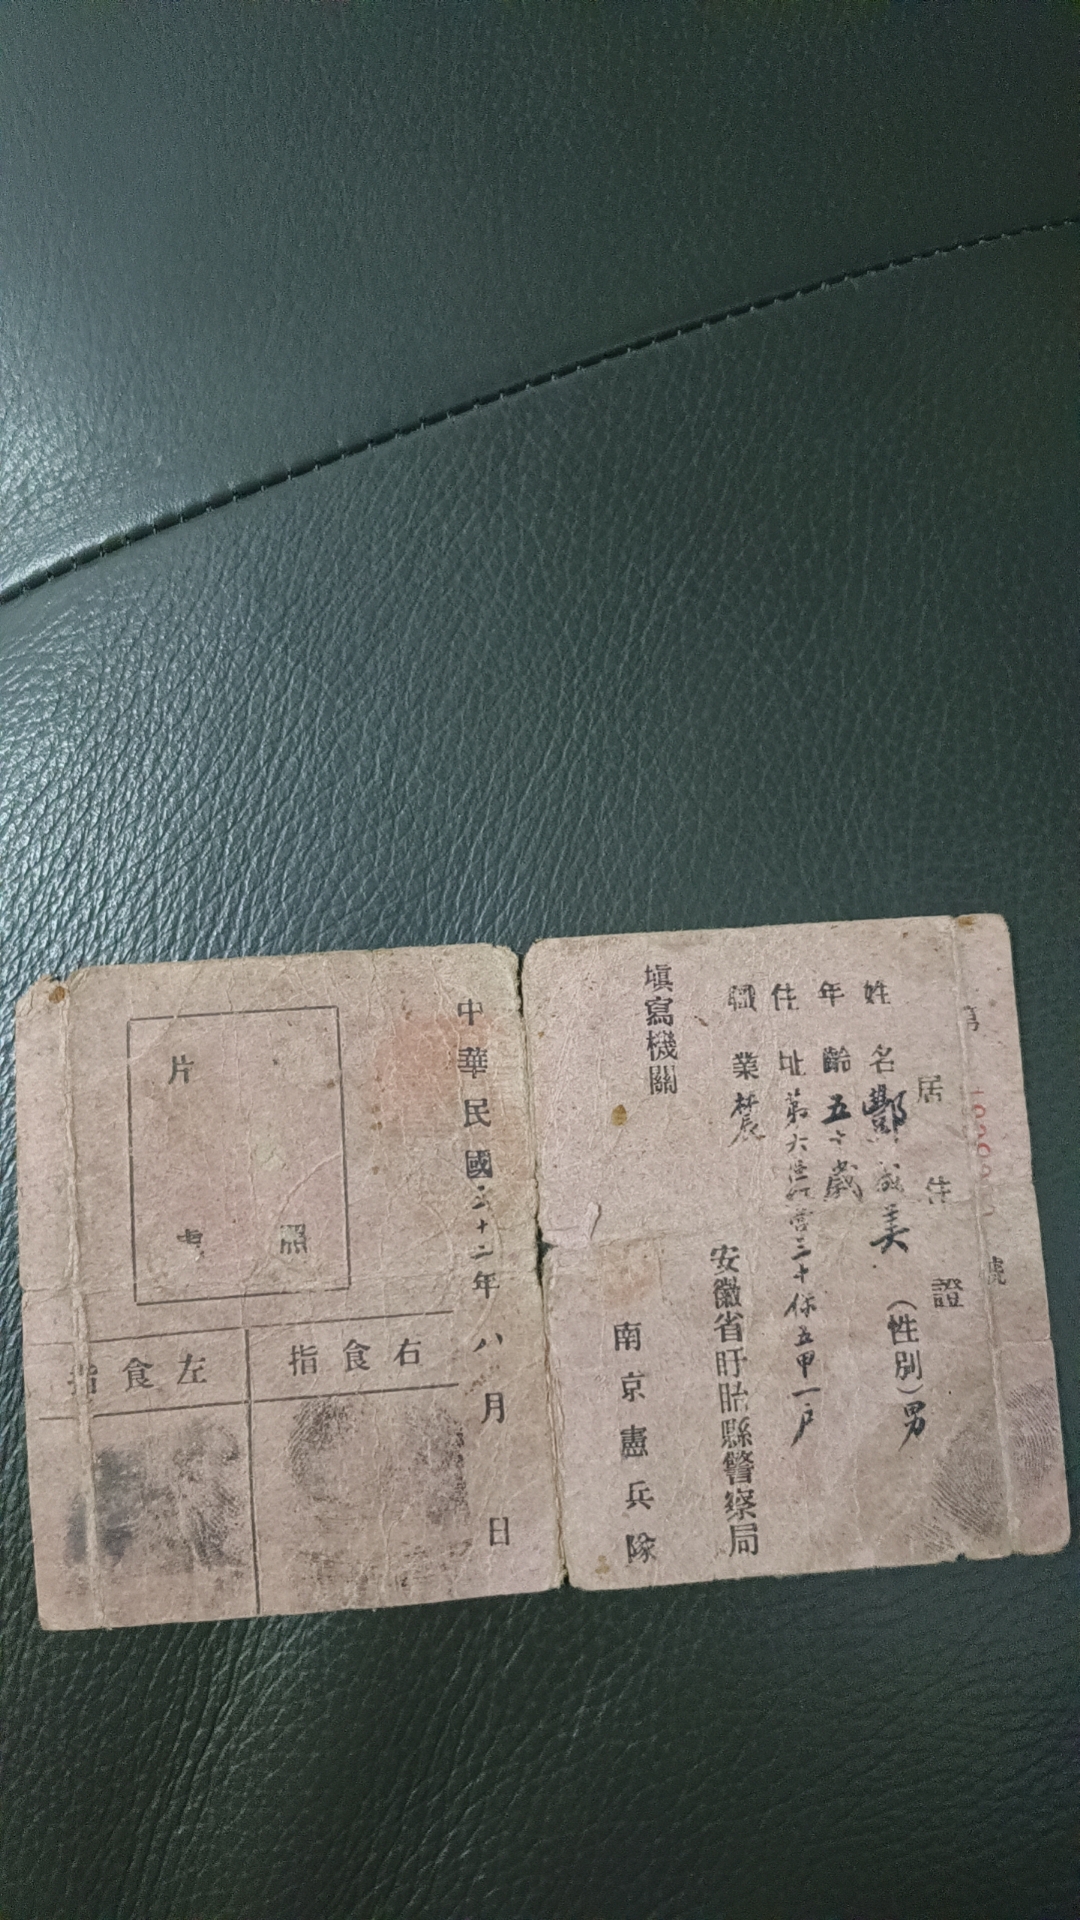 第 號
居住證
姓名酆成美(性別)男
年齡五十歲
住址第六區 營三十保五甲一户
職業農
安徽省盱眙縣警察局
填寫機關
南京憲兵隊
中華民國三十二年八月 日
照片
右食指
左食指